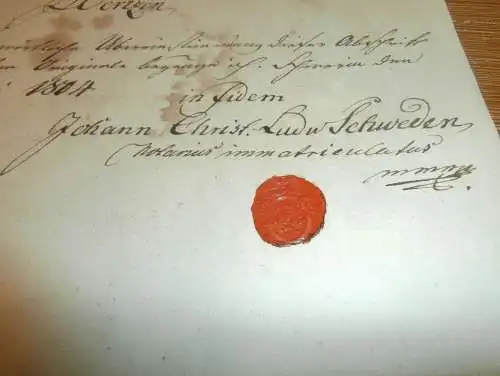 wörtliche Übereinstimmung dieser Abschrift
Originale bezeuge ich. Schwerin den
1804
in fidem
Johann Christ. Ludw Schweden
Notarius immatriculatus